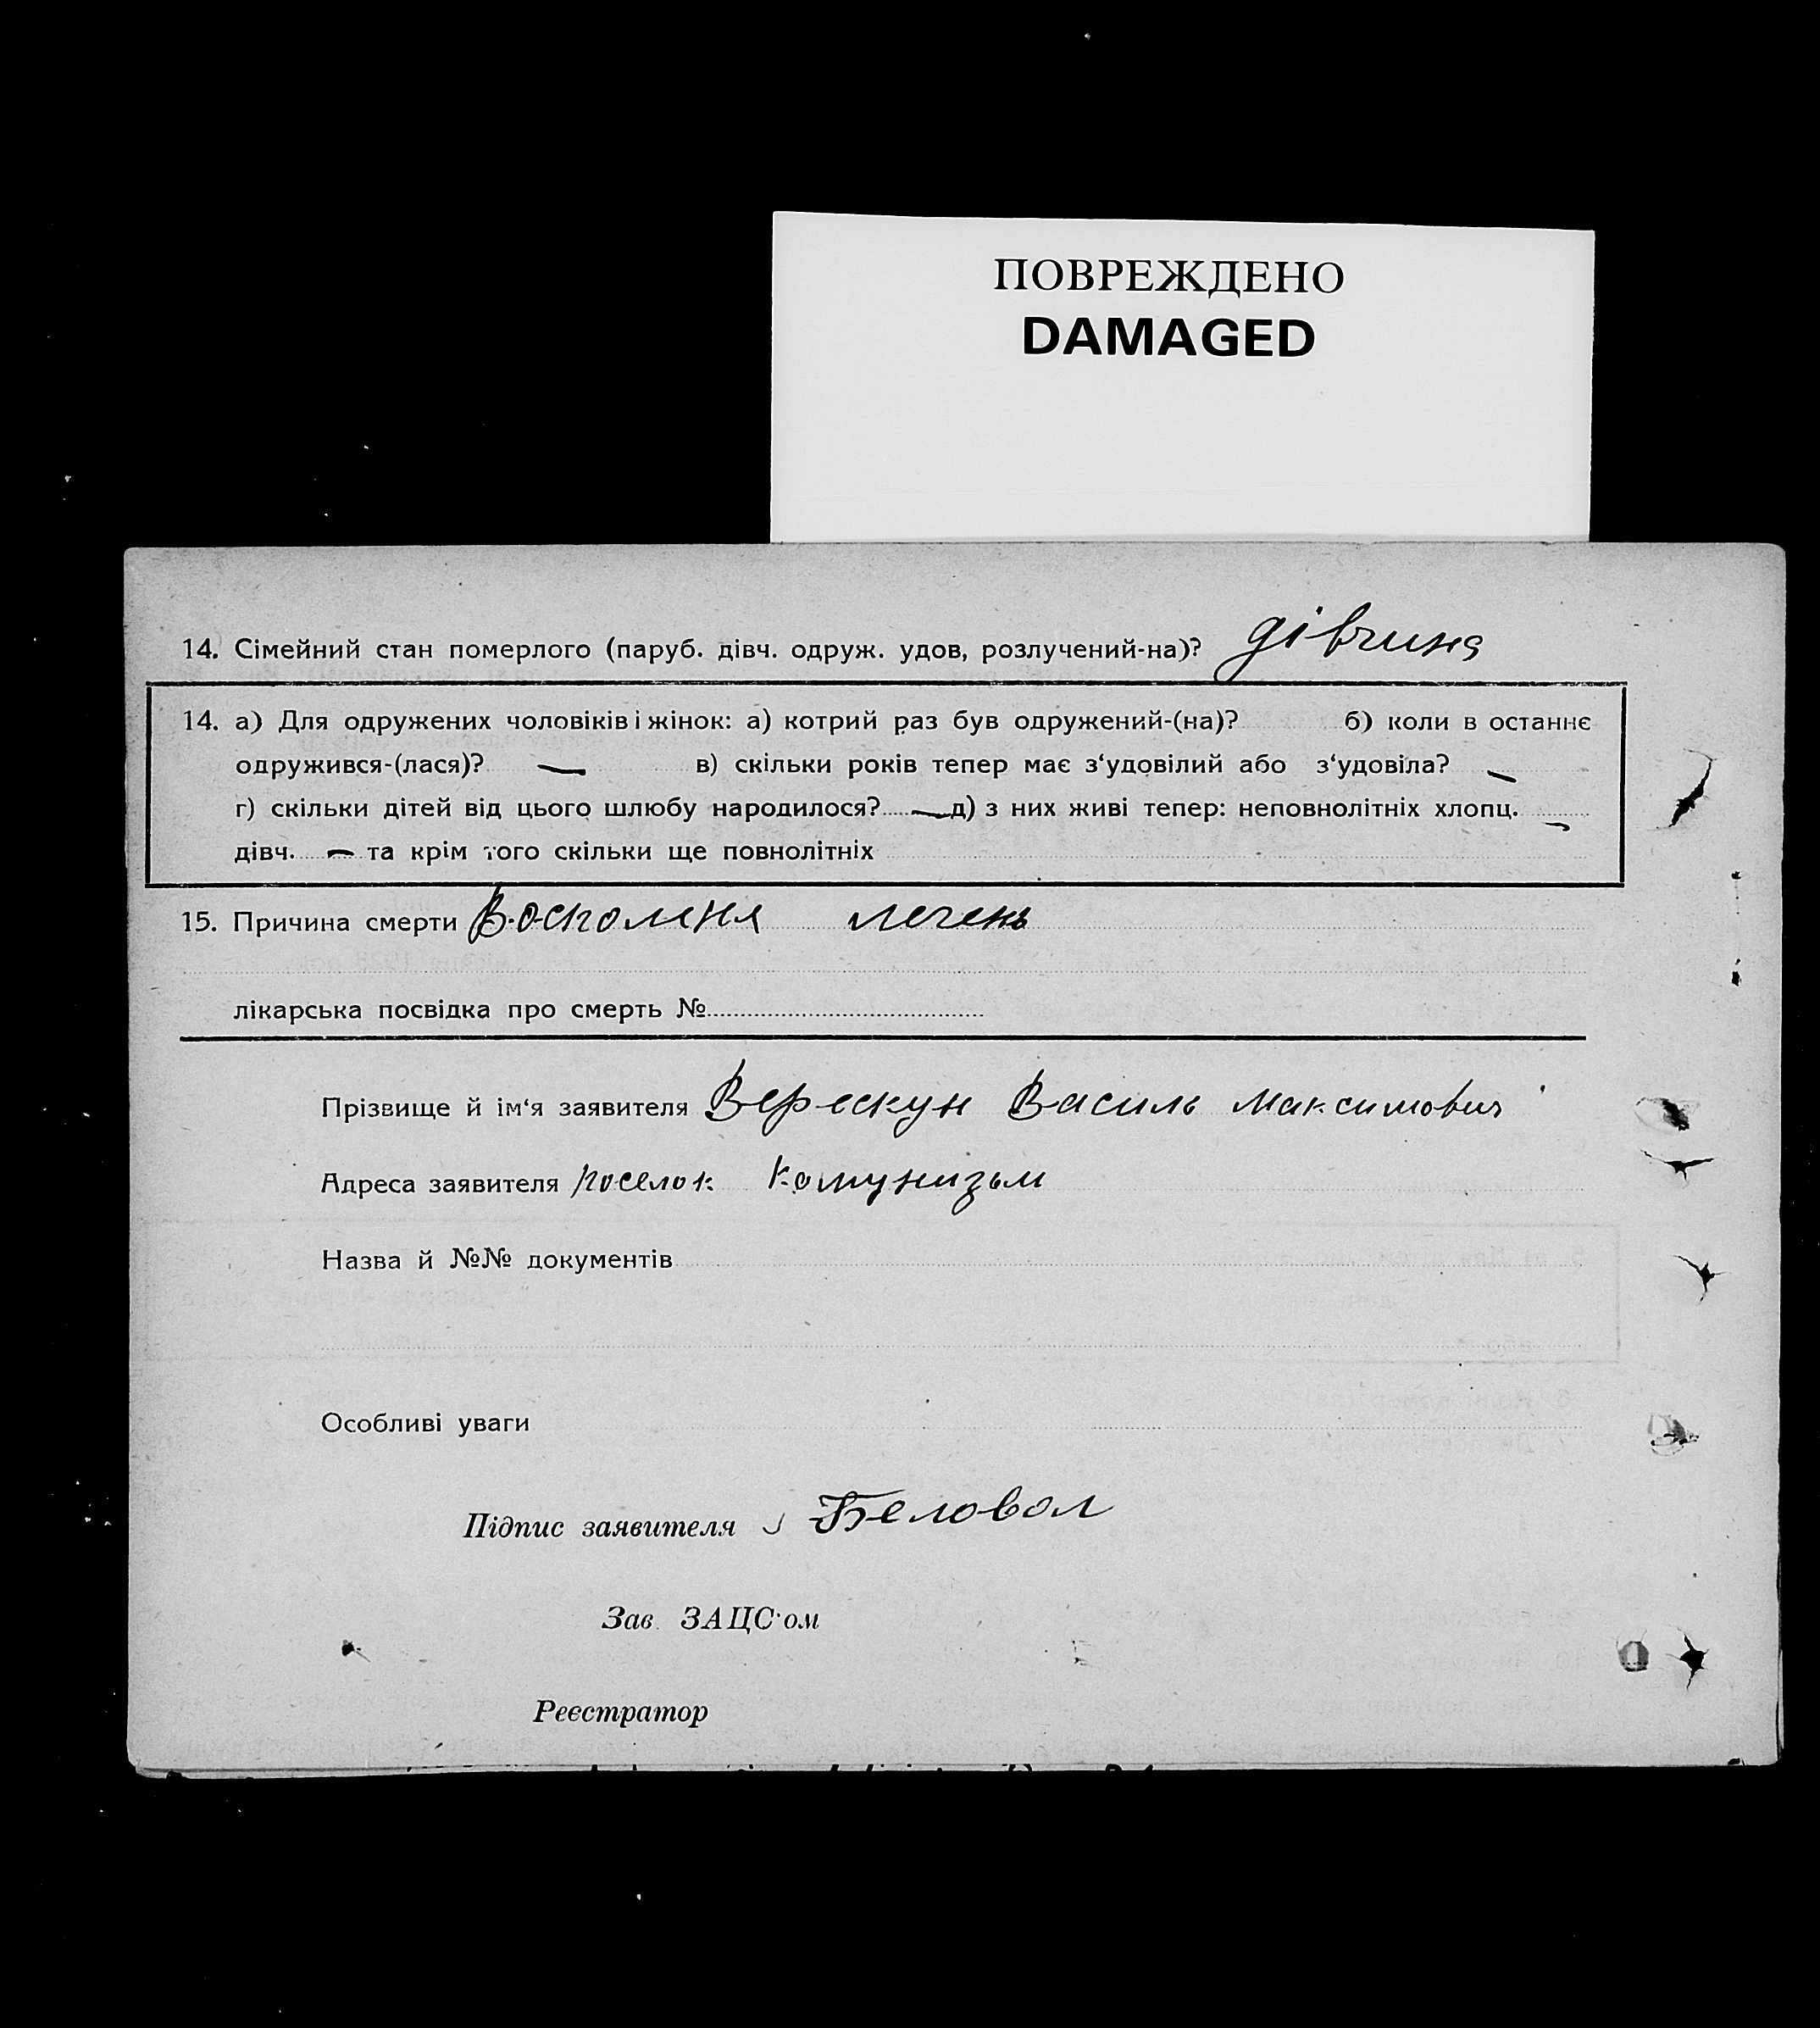 ПОВРЕЖДЕНО
DAMAGED
14. Сімейний стан померлого (паруб. дівч. одруж. удов, розлучений-на)? дівчина
14. а) Для одружених чоловіків і жінок: а) котрий раз був одружений-(на)? б) коли в останнє
одружився-(лася)? — в) скільки років тепер має з‘удовілий або з‘удовіла? —
г) скільки дітей від цього шлюбу народилося? — д) з них живі тепер: неповнолітніх хлопц. —
дівч. — та крім того скільки ще повнолітніх
15. Причина смерти Восполеня легень
лікарська посвідка про смерть №
Прізвище й ім‘я заявителя Верескун Василь Максимович
Адреса заявителя поселок Комунизьм
Назва й №№ документів
Особливі уваги
Підпис заявителя Беловол
Зав. ЗАЦС‘ом
Реєстратор